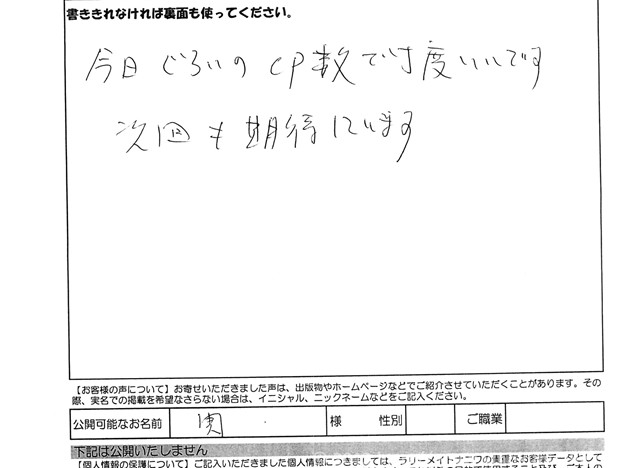 書ききれなければ裏面も使ってください。
今日ぐらいのCP数で丁度いいです
次回も期待しています
【お客様の声について】お寄せいただきました声は、出版物やホームページなどでご紹介させていただくことがあります。その
際、実名での掲載を希望なさらない場合は、イニシャル、ニックネームなどをご記入ください。
公開可能なお名前 様 性別 ご職業
下記は公開いたしません
【個人情報の保護について】ご記入いただきました個人情報につきましては、ラリーメイトナニワの貴重なお客様データとして